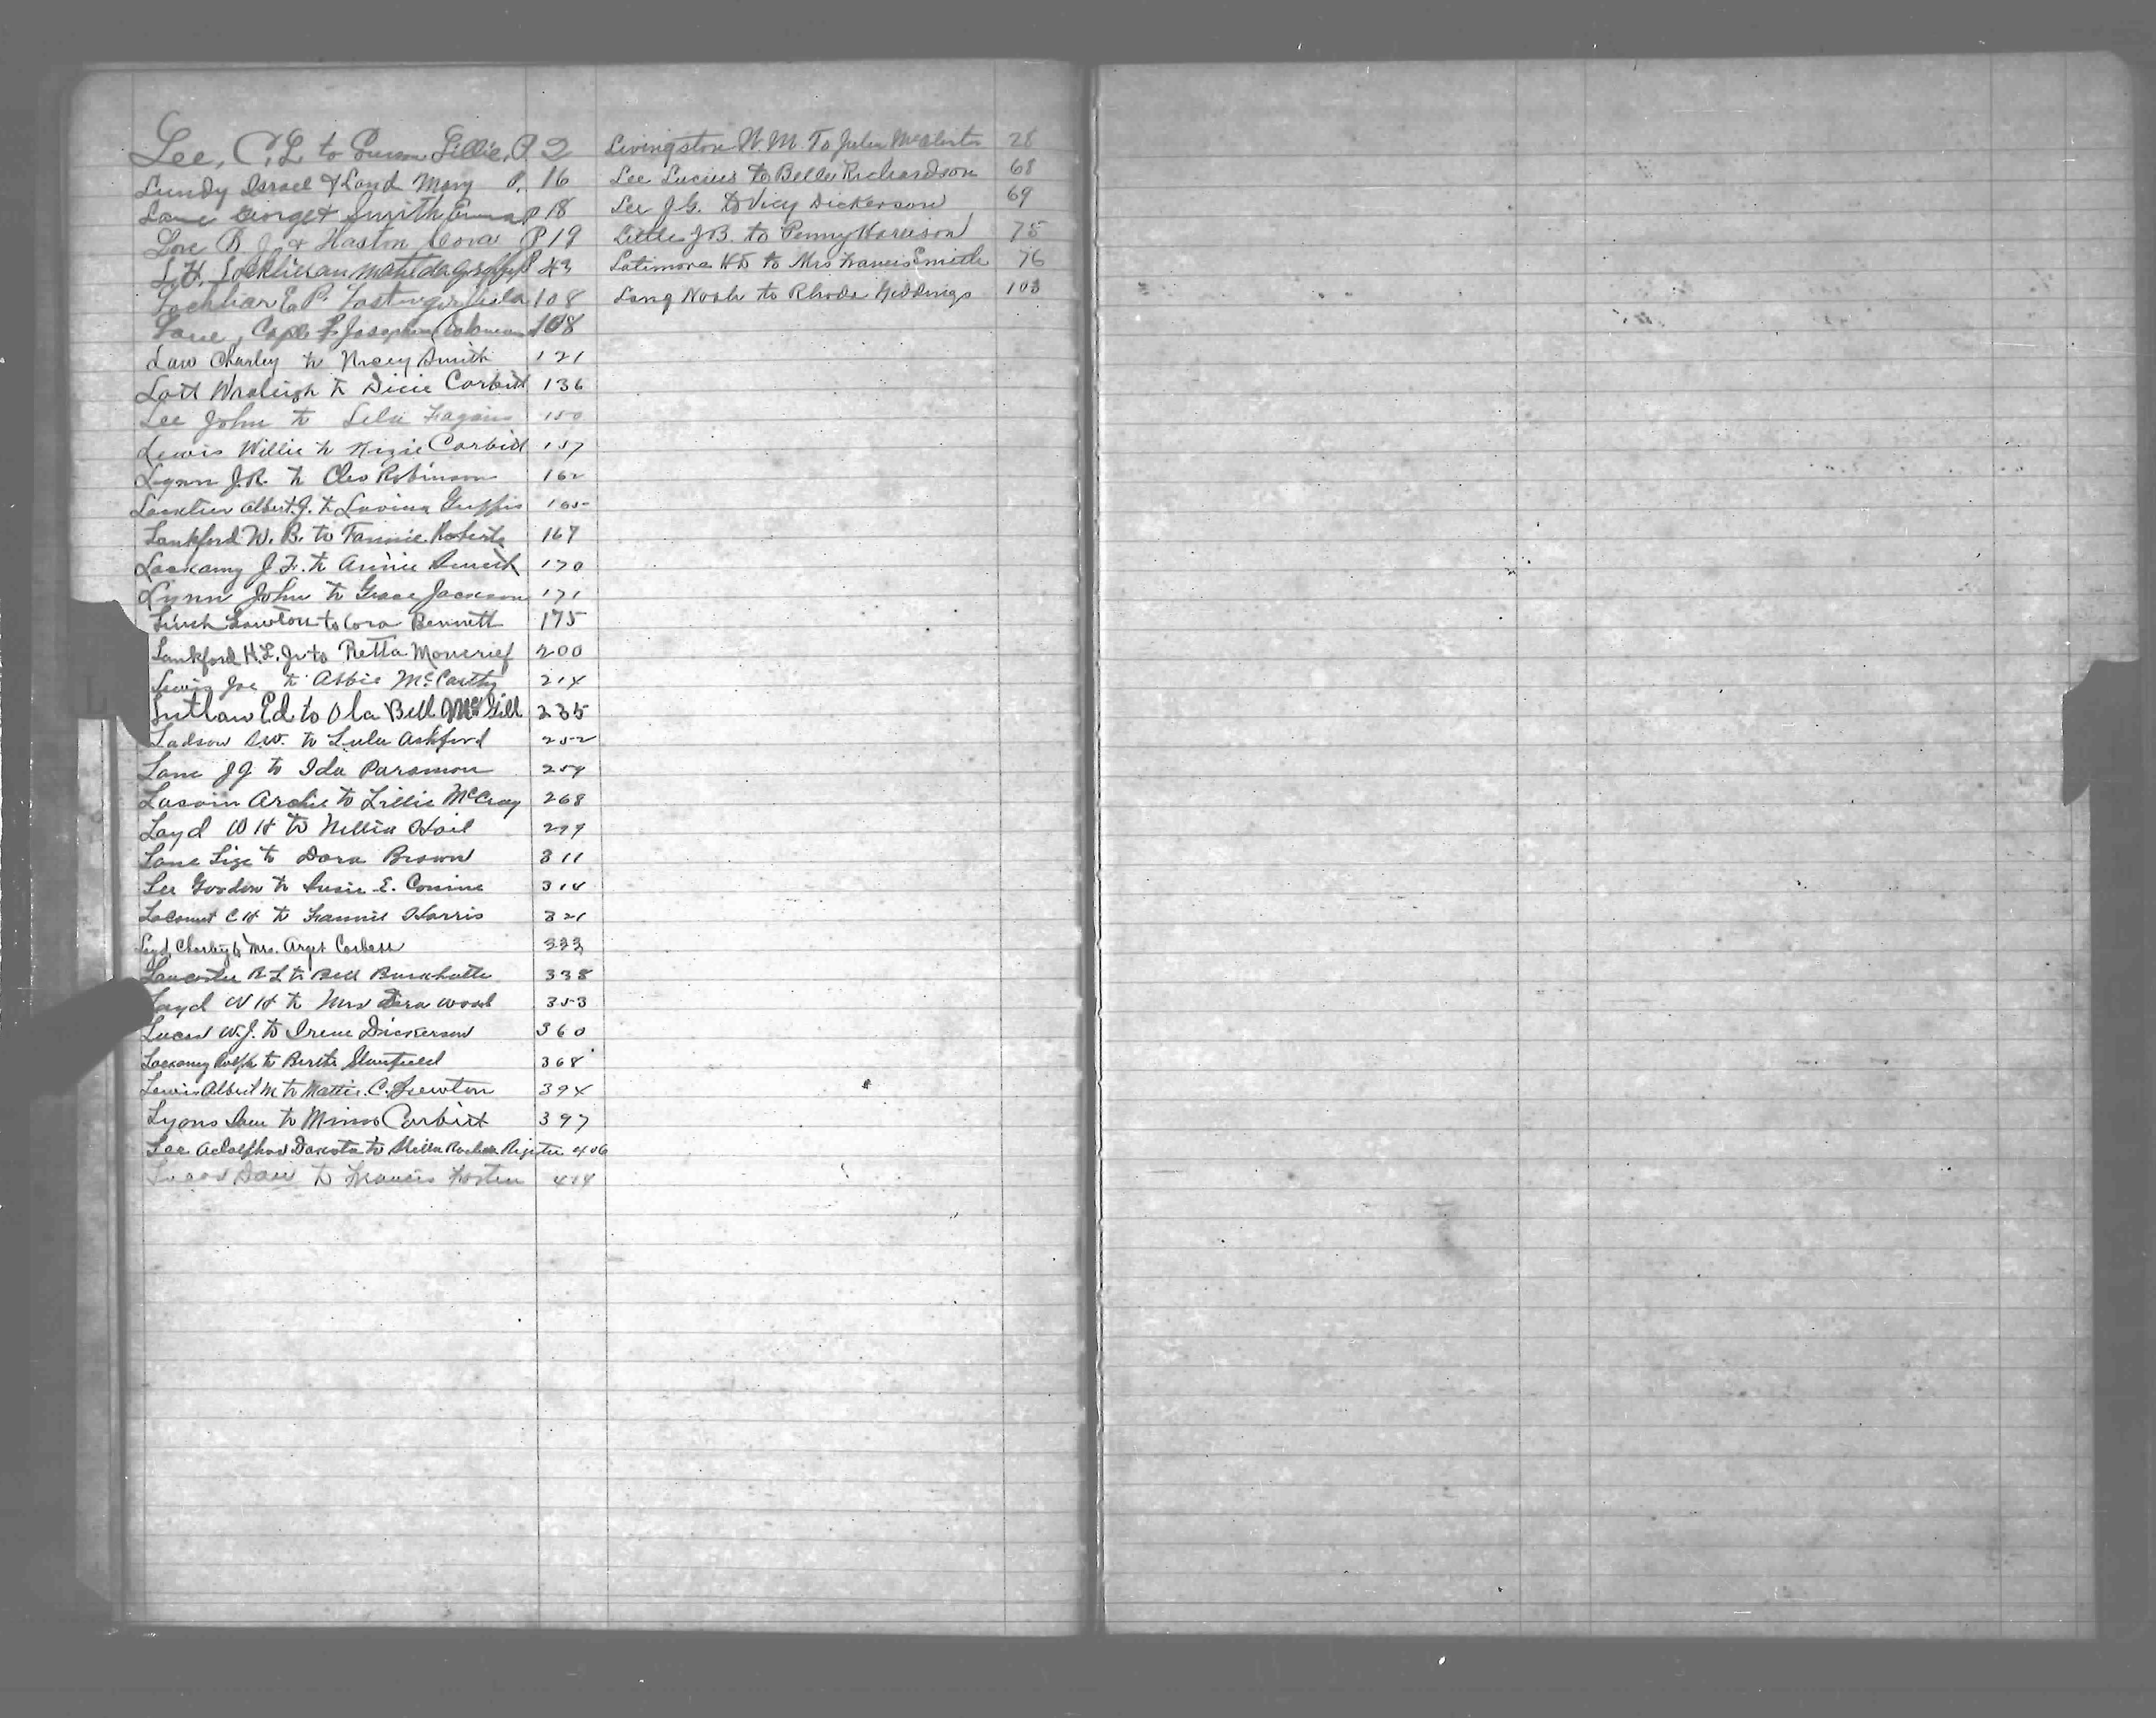 Lee, C. L. to Lillie, P. 2
Lundy Israel & Land Mary P. 16
Lane George & Smith Emma P 18
Love B. J. & Haston Cora P 19
L. H. Locklieaur Matilda P 43
E. P. 108
Lane, Capl. & Josephine Coleman 108
Law Charley to Smith 121
Lott Wraleigh to Dicie Corbitt 136
Lee John to Lela Fagans 150
Lewis Willie to Corbitt 157
Lynn J. R. to Cleo Robinson 162
Albert J. to Lavina Griffis 165
Lankford W. B. to Fannie Roberts 167
Lackamy J. F. to Annie Smith 170
Lynn John to Grace Jackson 171
Linch Lawton to Cora Bennett 175
Lankford H. L. Jr to Retta Moncrief 200
Lewis Joe to Abbie McCarthy 214
Lutlaw Ed to Ola Bell McGill 235
Ladson S. W. to Lula Ashford 252
Lane J J to Ida Paramore 259
Archie to Lillie McCray 268
Loyd W H to Nellia Hail 299
Lane Lige to Dora Brown 311
Lee Gordon to Susie E. 314
C H to Fannie Harris 321
Loyd Charley to Mrs. Corbett 333
Lancaster R L to Bell Burkhalte 338
Loyd W H to Mrs Dora Wood 353
Lucas W. J. to Irene Dickerson 360
Lackamy Ralph to Bertha Stanfield 368
Lewis Albert M to Mattie C. Newton 394
Lyons Sam to Corbitt 397
Lee Adolphus Dacosta to Register 406
Lucas Dave to Francis Foster 414
Livingston W. M. To Julia 28
Lee Lucius to Belle Richardson 68
Lee J. G. to Vicy Dickerson 69
Little J B. to Penny Harrison 75
Latimore H D to Mrs Francis Smith 76
Long Noah to Rhoda Giddings 103